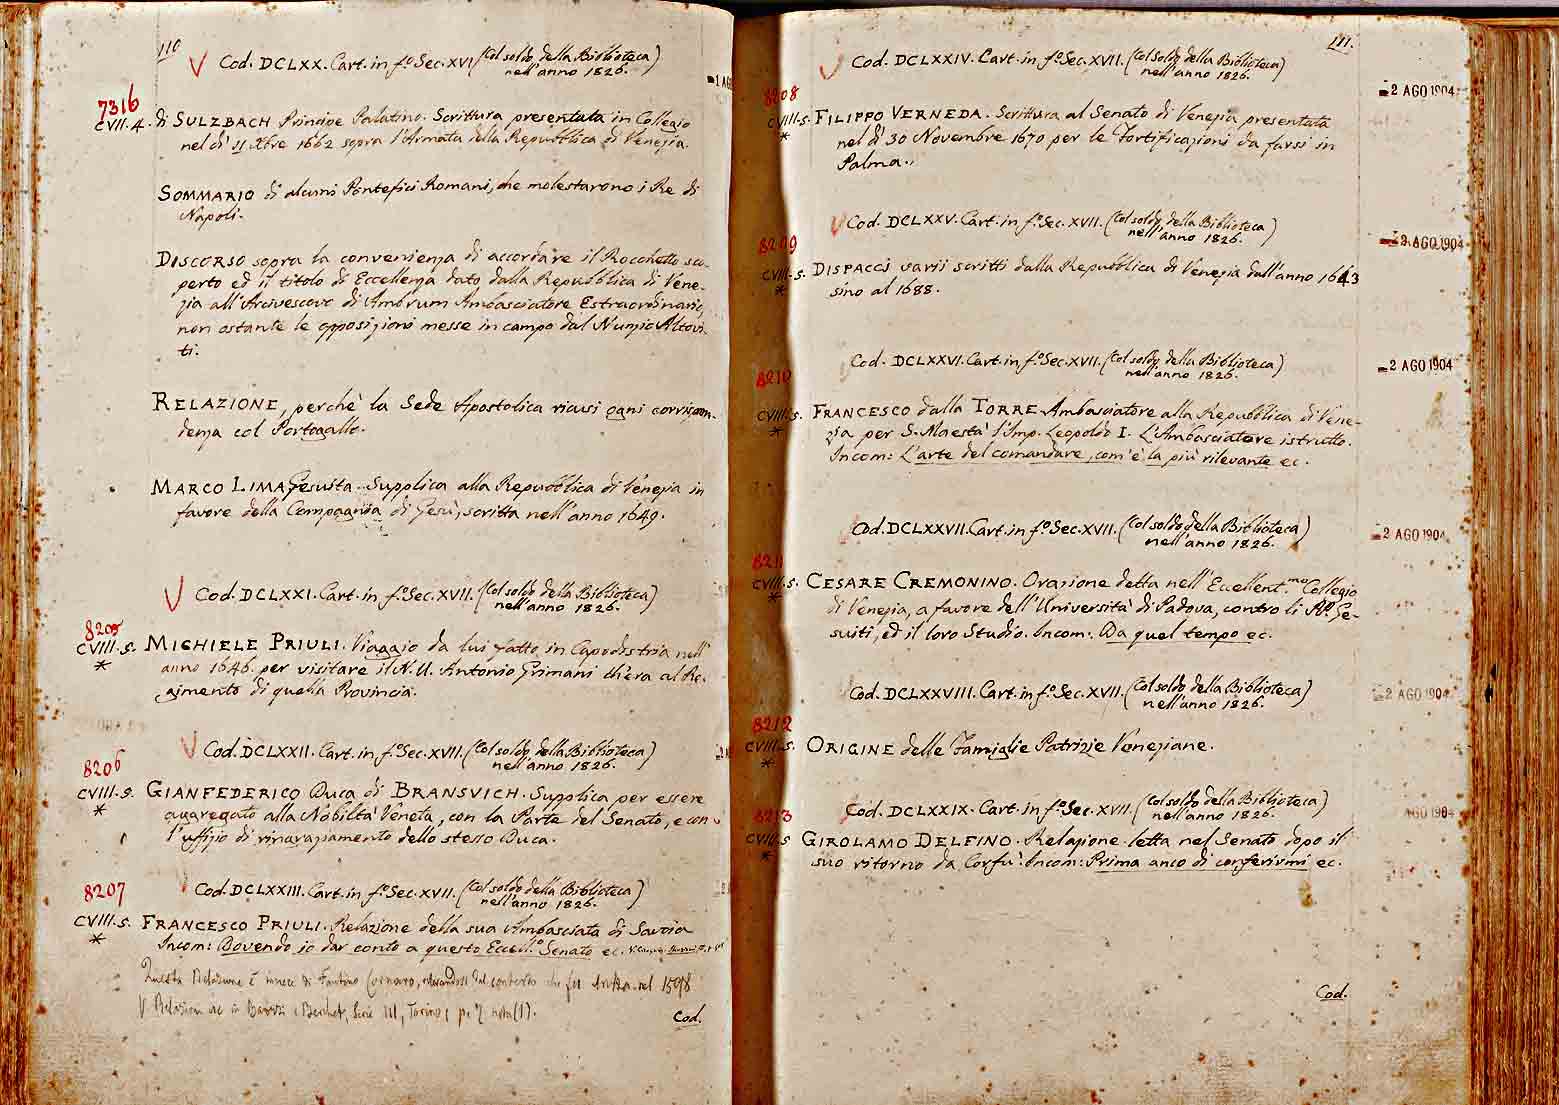 110
Cod. DCLXX. Cart. in fº. Sec. XVI (Col soldo della Biblioteca)
nell'anno 1826.
7316
CVII. 4. di SULZBACH Principe Palatino. Scrittura presentata in Collegio
nel dì 11 Xbre 1662 sopra l'Armata della Repubblica di Venezia.
SOMMARIO di alcuni Pontefici Romani, che molestarono i Re di
Napoli.
DISCORSO sopra la convenienza di accordare il Rocchetto sco-
perto ed il titolo di Eccellenza dato dalla Repubblica di Vene-
zia all'Arcivescovo di Ambrum Ambasciatore Estraordinario,
non ostante le opposizioni messe in campo dal Nunzio Altovi-
ti.
RELAZIONE, perchè la Sede Apostolica ricusi ogni corrispon-
denza col Portogallo.
MARCO LIMA Gesuita. Supplica alla Repubblica di Venezia in
favore della Compagnia di Gesù, scritta nell'anno 1649.
Cod. DCLXXI. Cart. in fº. Sec. XVII. (Col soldo della Biblioteca)
nell'anno 1826.
8205
CVIII. 5. MICHIELE PRIULI. Viaggio da lui fatto in Capodistria nell'
* anno 1646. per visitare il N. U. Antonio Grimani ch'era al Re-
gimento di quella Provincia.
Cod. DCLXXII. Cart. in fº. Sec. XVII. (Col soldo della Biblioteca)
nell'anno 1826.
8206
CVIII. 5. GIANFEDERICO Duca di BRANSVICH. Supplica per essere
* aggregato alla Nobiltà Veneta, con la Parte del Senato, e con
l'uffizio di ringraziamento dello stesso Duca.
8207
Cod. DCLXXIII. Cart. in fº. Sec. XVII. (Col soldo della Biblioteca)
nell'anno 1826.
CVIII. 5. FRANCESCO PRIULI. Relazione della sua Ambasciata di Savoia
* Incom: Dovendo io dar conto a questo Eccellº. Senato ec.
Questa Relazione è invece di Fantino Cornaro, rilevandosi dal contesto che fu scritta nel 1598
V. Relazioni ec in Barozzi e Berchet, Serie III, Torino, p. 7 nota (1).
Cod.
111.
Cod. DCLXXIV. Cart. in fº. Sec. XVII. (Col soldo della Biblioteca)
nell'anno 1826.
2 AGO 1904
8208
CVIII. 5. FILIPPO VERNEDA. Scrittura al Senato di Venezia presentata
* nel dì 30 Novembre 1670 per le Fortificazioni da farsi in
Palma.
Cod. DCLXXV. Cart. in fº. Sec. XVII. (Col soldo della Biblioteca)
nell'anno 1826.
2 AGO 1904
8209
CVIII. 5. DISPACCI varii scritti dalla Repubblica di Venezia dall'anno 1643
* sino al 1688.
Cod. DCLXXVI. Cart. in fº. Sec. XVII. (Col soldo della Biblioteca)
nell'anno 1826.
2 AGO 1904
8210
CVIII. 5. FRANCESCO dalla TORRE Ambasciatore alla Repubblica di Vene-
* zia per S. Maestà l'Imp. Leopoldo I. L'Ambasciatore istrutto.
Incom: L'arte del comandare, com'è la più rilevante ec.
Cod. DCLXXVII. Cart. in fº. Sec. XVII. (Col soldo della Biblioteca)
nell'anno 1826.
2 AGO 1904
8211
CVIII. 5. CESARE CREMONINO. Orazione detta nell'Eccellent.mo Collegio
* di Venezia, a favore dell'Università di Padova, contro li PP. Ge-
suiti, ed il loro Studio. Incom: Da quel tempo ec.
Cod. DCLXXVIII. Cart. in fº. Sec. XVII. (Col soldo della Biblioteca)
nell'anno 1826.
2 AGO 1904
8212
CVIII. 5. ORIGINE delle Famiglie Patrizie Veneziane.
*
Cod. DCLXXIX. Cart. in fº. Sec. XVII. (Col soldo della Biblioteca)
nell'anno 1826.
AGO 1904
8213
CVIII. 5 GIROLAMO DELFINO. Relazione letta nel Senato dopo il
* suo ritorno da Corfù. Incom: Prima anco di conferirmi ec.
Cod.